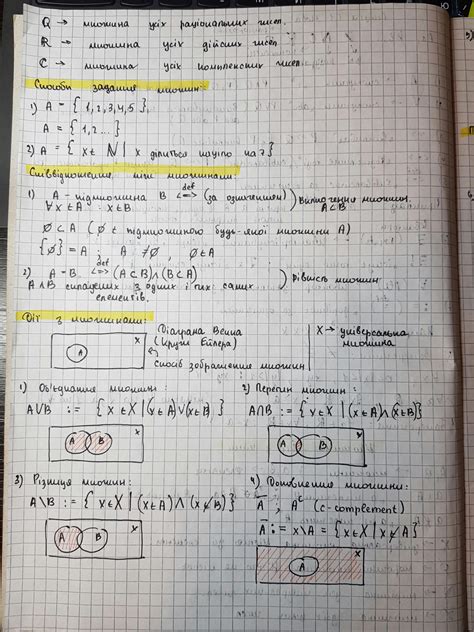 Q → множина усіх раціональних чисел.
R → множина усіх дійсних чисел
C → множина усіх комплексних чисел
Способи задання множин:
1) A = { 1, 2, 3, 4, 5 }
A = { 1, 2 ... }
2) A = { x ∈ N | x ділиться націло на 7 }
Співвідношення між множинами:
1) A - підмножина B <=> def (за означенням) ) Включення множин
∀x ∈ A : x ∈ B A ⊂ B
∅ ⊂ A (∅ є підмножиною будь-якої множини A)
{∅} = A ; A ≠ ∅, ∅ ∈ A
2) A = B <=> def (A ⊂ B) ∧ (B ⊂ A) ) рівність множин
A ∧ B складених з одних і тих самих
елементів.
Дії з множинами:
A x
Діаграма Венна
(Круги Ейлера)
спосіб зображення множин
X → універсальна
множина
1) Об'єднання множин:
A ∪ B := { x ∈ X | (x ∈ A) ∨ (x ∈ B) }
A B x
2) Перетин множин:
A ∩ B := { x ∈ X | (x ∈ A) ∧ (x ∈ B) }
A B x
3) Різниця множин:
A \ B := { x ∈ X | (x ∈ A) ∧ (x ∉ B) }
A B x
4) Доповнення множини:
Ā, Aᶜ (c-complement)
Ā := X \ A = { x ∈ X | x ∉ A }
A x